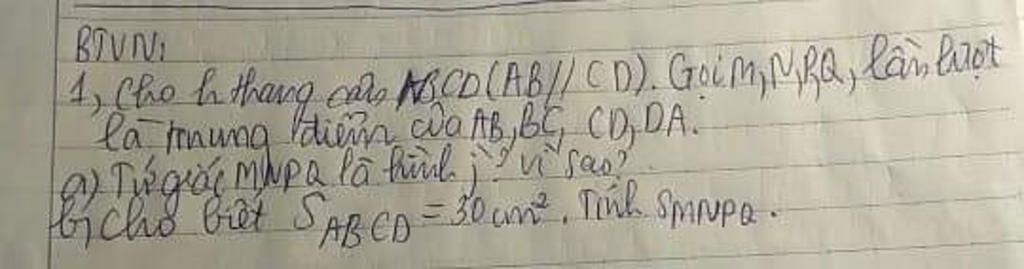 BTVN:
1, Cho h thang cân ABCD (AB // CD). Gọi M, N, P, Q, lần lượt
là trung điểm của AB, BC, CD, DA.
a) Tứ giác MNPQ là hình j? vì sao?
b, Cho biết S ABCD = 30 cm². Tính SMNPQ.